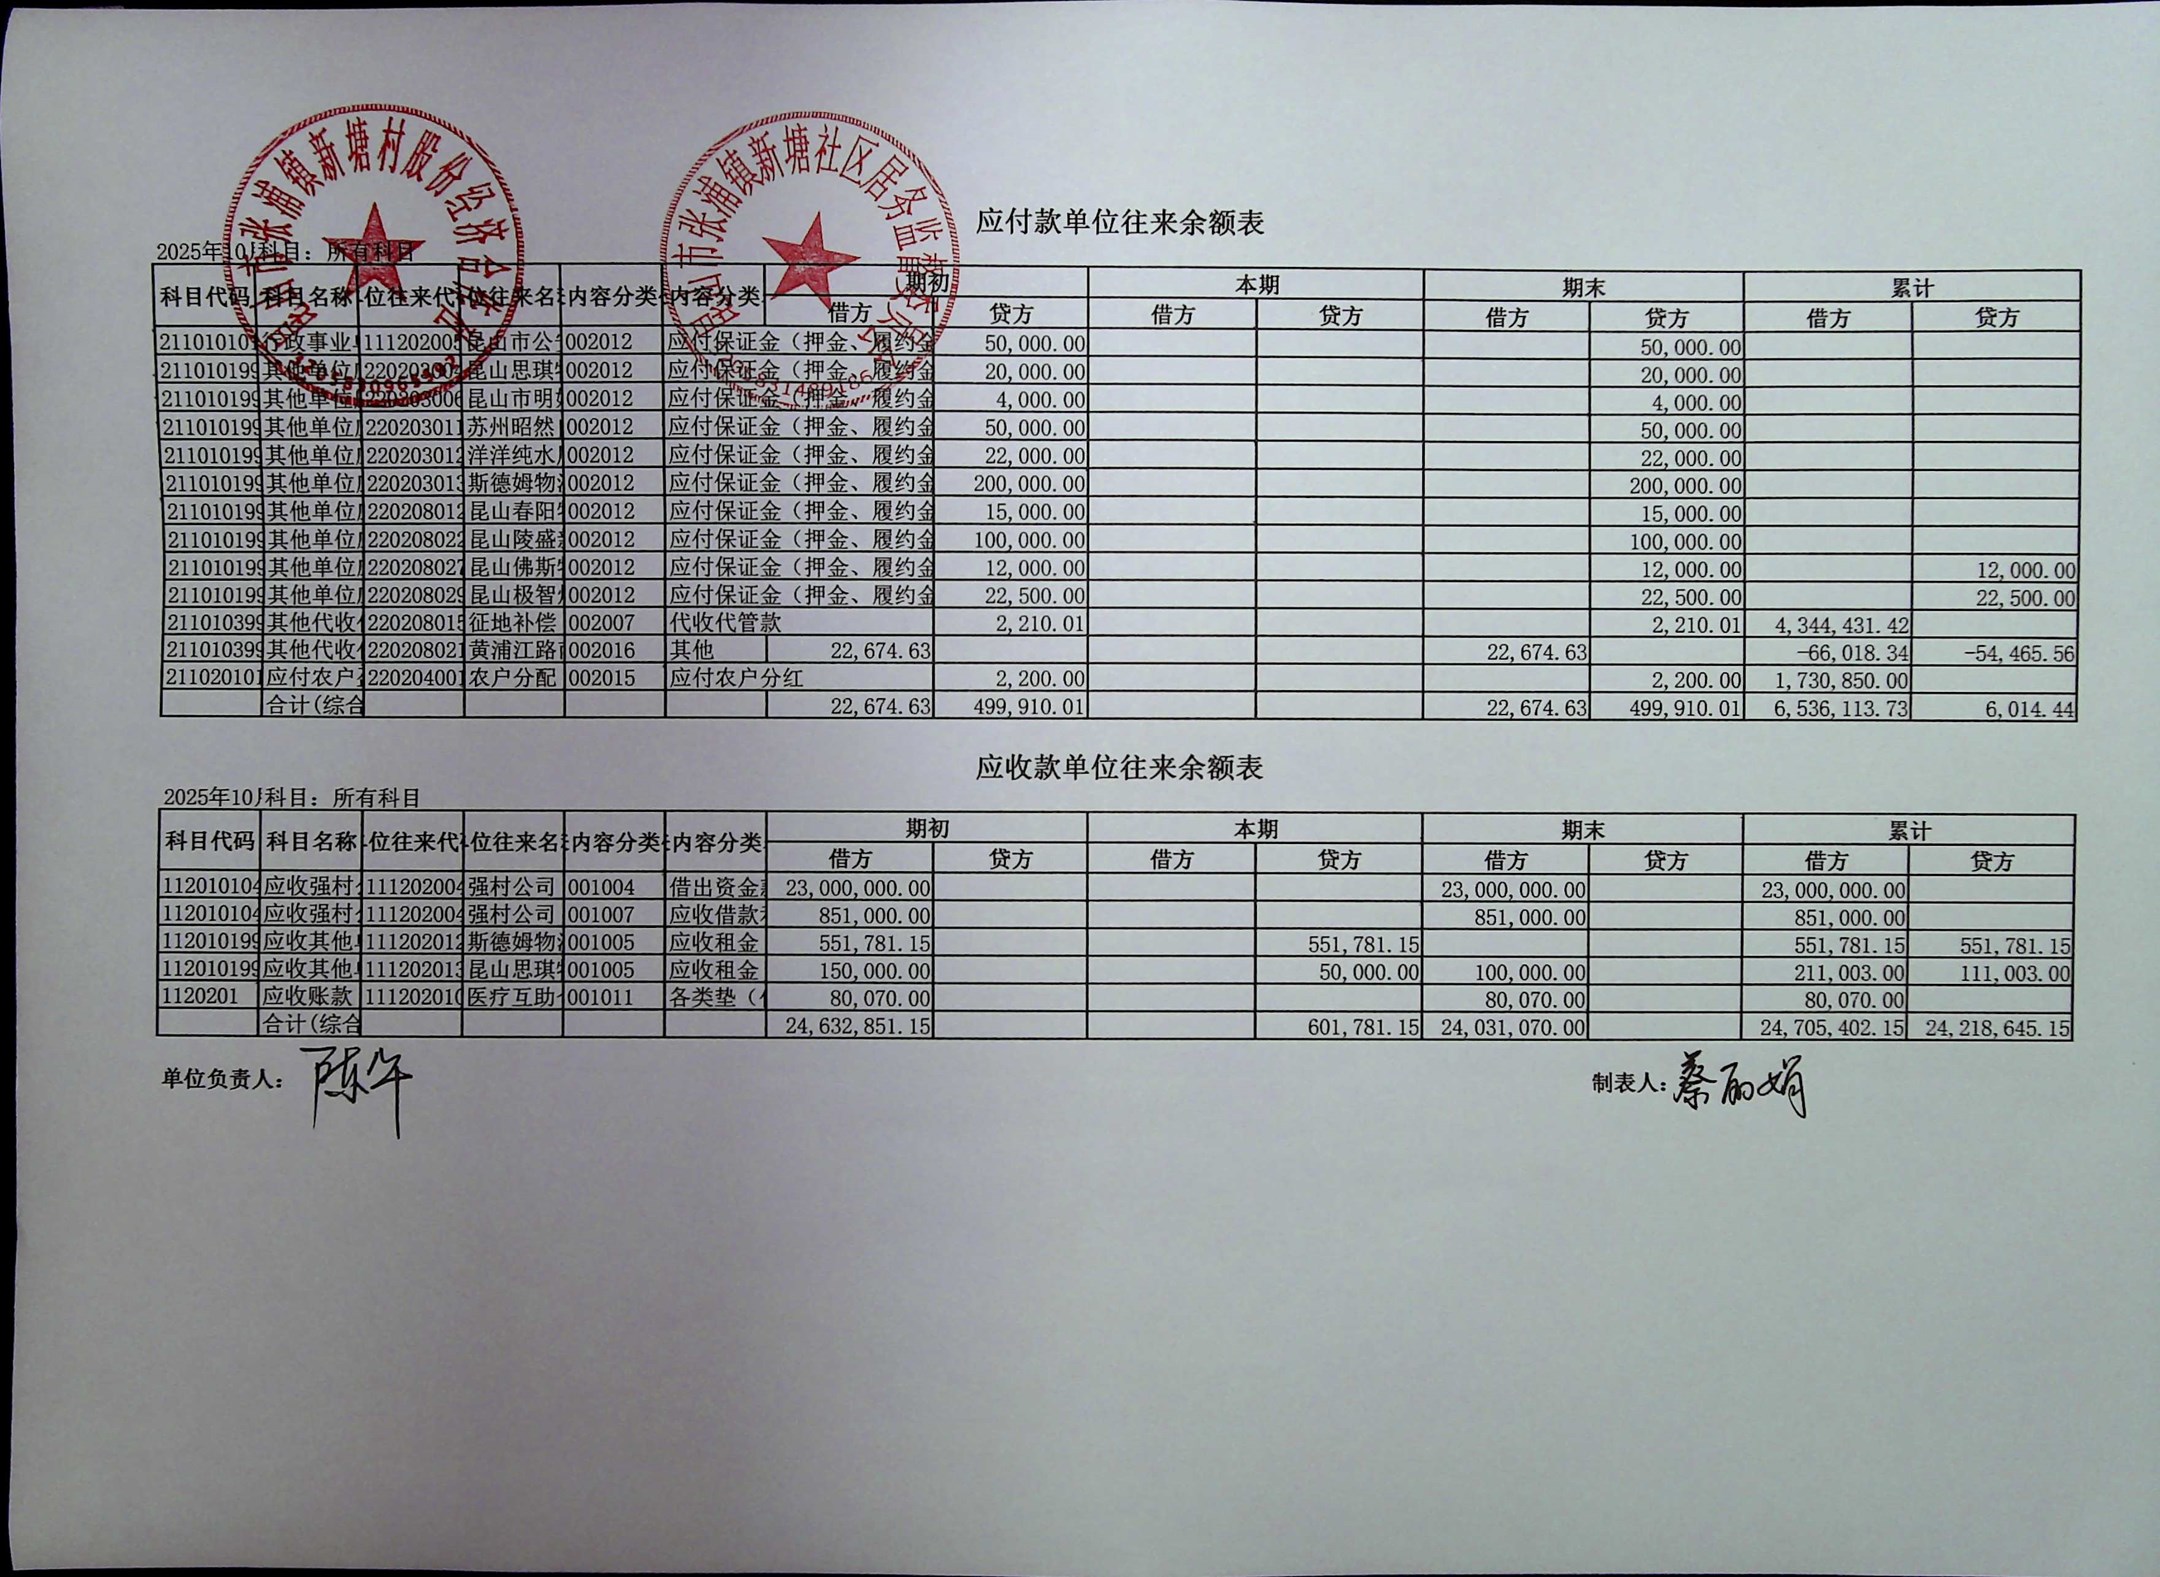 昆山市张浦镇新塘村股份经济合作社
昆山市张浦镇新塘社区居务监督委员会
应付款单位往来余额表
2025年10月科目：所有科目
科目代码 科目名称 位往来代 位往来名 内容分类 内容分类 期初 本期 期末 累计
借方 贷方 借方 贷方 借方 贷方 借方 贷方
211010101 行政事业 111202005 昆山市公 002012 应付保证金（押金、履约金 50,000.00 50,000.00
211010199 其他单位 22020300 昆山思琪 002012 应付保证金（押金、履约金 20,000.00 20,000.00
211010199 其他单位 220203006 昆山市明 002012 应付保证金（押金、履约金 4,000.00 4,000.00
211010199 其他单位 220203011 苏州昭然 002012 应付保证金（押金、履约金 50,000.00 50,000.00
211010199 其他单位 220203012 洋洋纯水 002012 应付保证金（押金、履约金 22,000.00 22,000.00
211010199 其他单位 220203013 斯德姆物 002012 应付保证金（押金、履约金 200,000.00 200,000.00
211010199 其他单位 220208012 昆山春阳 002012 应付保证金（押金、履约金 15,000.00 15,000.00
211010199 其他单位 220208022 昆山陵盛 002012 应付保证金（押金、履约金 100,000.00 100,000.00
211010199 其他单位 220208027 昆山佛斯 002012 应付保证金（押金、履约金 12,000.00 12,000.00 12,000.00
211010199 其他单位 220208029 昆山极智 002012 应付保证金（押金、履约金 22,500.00 22,500.00 22,500.00
211010399 其他代收 220208015 征地补偿 002007 代收代管款 2,210.01 2,210.01 4,344,431.42
211010399 其他代收 220208021 黄浦江路 002016 其他 22,674.63 22,674.63 -66,018.34 -54,465.56
211020101 应付农户 220204001 农户分配 002015 应付农户分红 2,200.00 2,200.00 1,730,850.00
合计(综合 22,674.63 499,910.01 22,674.63 499,910.01 6,536,113.73 6,014.44
应收款单位往来余额表
2025年10月科目：所有科目
科目代码 科目名称 位往来代 位往来名 内容分类 内容分类 期初 本期 期末 累计
借方 贷方 借方 贷方 借方 贷方 借方 贷方
112010104 应收强村 111202004 强村公司 001004 借出资金 23,000,000.00 23,000,000.00 23,000,000.00
112010104 应收强村 111202004 强村公司 001007 应收借款 851,000.00 851,000.00 851,000.00
112010199 应收其他 111202012 斯德姆物 001005 应收租金 551,781.15 551,781.15 551,781.15 551,781.15
112010199 应收其他 111202013 昆山思琪 001005 应收租金 150,000.00 50,000.00 100,000.00 211,003.00 111,003.00
1120201 应收账款 111202010 医疗互助 001011 各类垫（ 80,070.00 80,070.00 80,070.00
合计(综合 24,632,851.15 601,781.15 24,031,070.00 24,705,402.15 24,218,645.15
单位负责人： 陈华 制表人：蔡丽娟